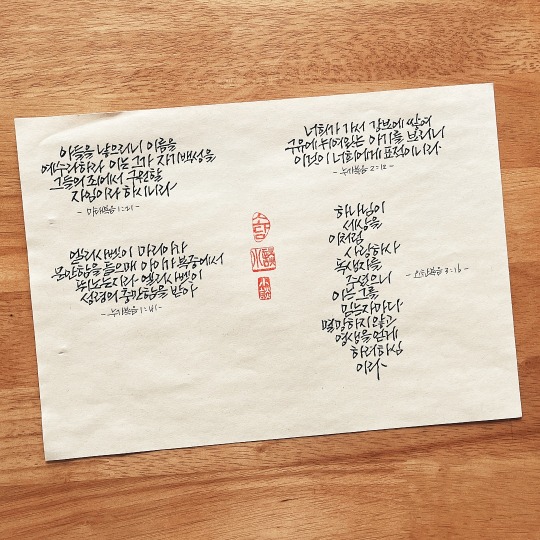 아들을 낳으리니 이름을
예수라하라 이는 그가 자기백성을
그들의 죄에서 구원할
자임이라 하시니라
- 마태복음 1:21 -
엘리사벳이 마리아가
문안함을 들으매 아이가 복중에서
뛰노는지라 엘리사벳이
성령의 충만함을 받아
- 누가복음 1:41 -
너희가 가서 강보에 쌓여
구유에 뉘어있는 아기를 보리니
이것이 너희에게 표적이니라
- 누가복음 2:12 -
하나님이
세상을
이처럼
사랑하사
독생자를
주셨으니
이는 그를
믿는자마다
멸망하지않고
영생을얻게
하려하심
이라
- 요한복음 3:16 -
소담